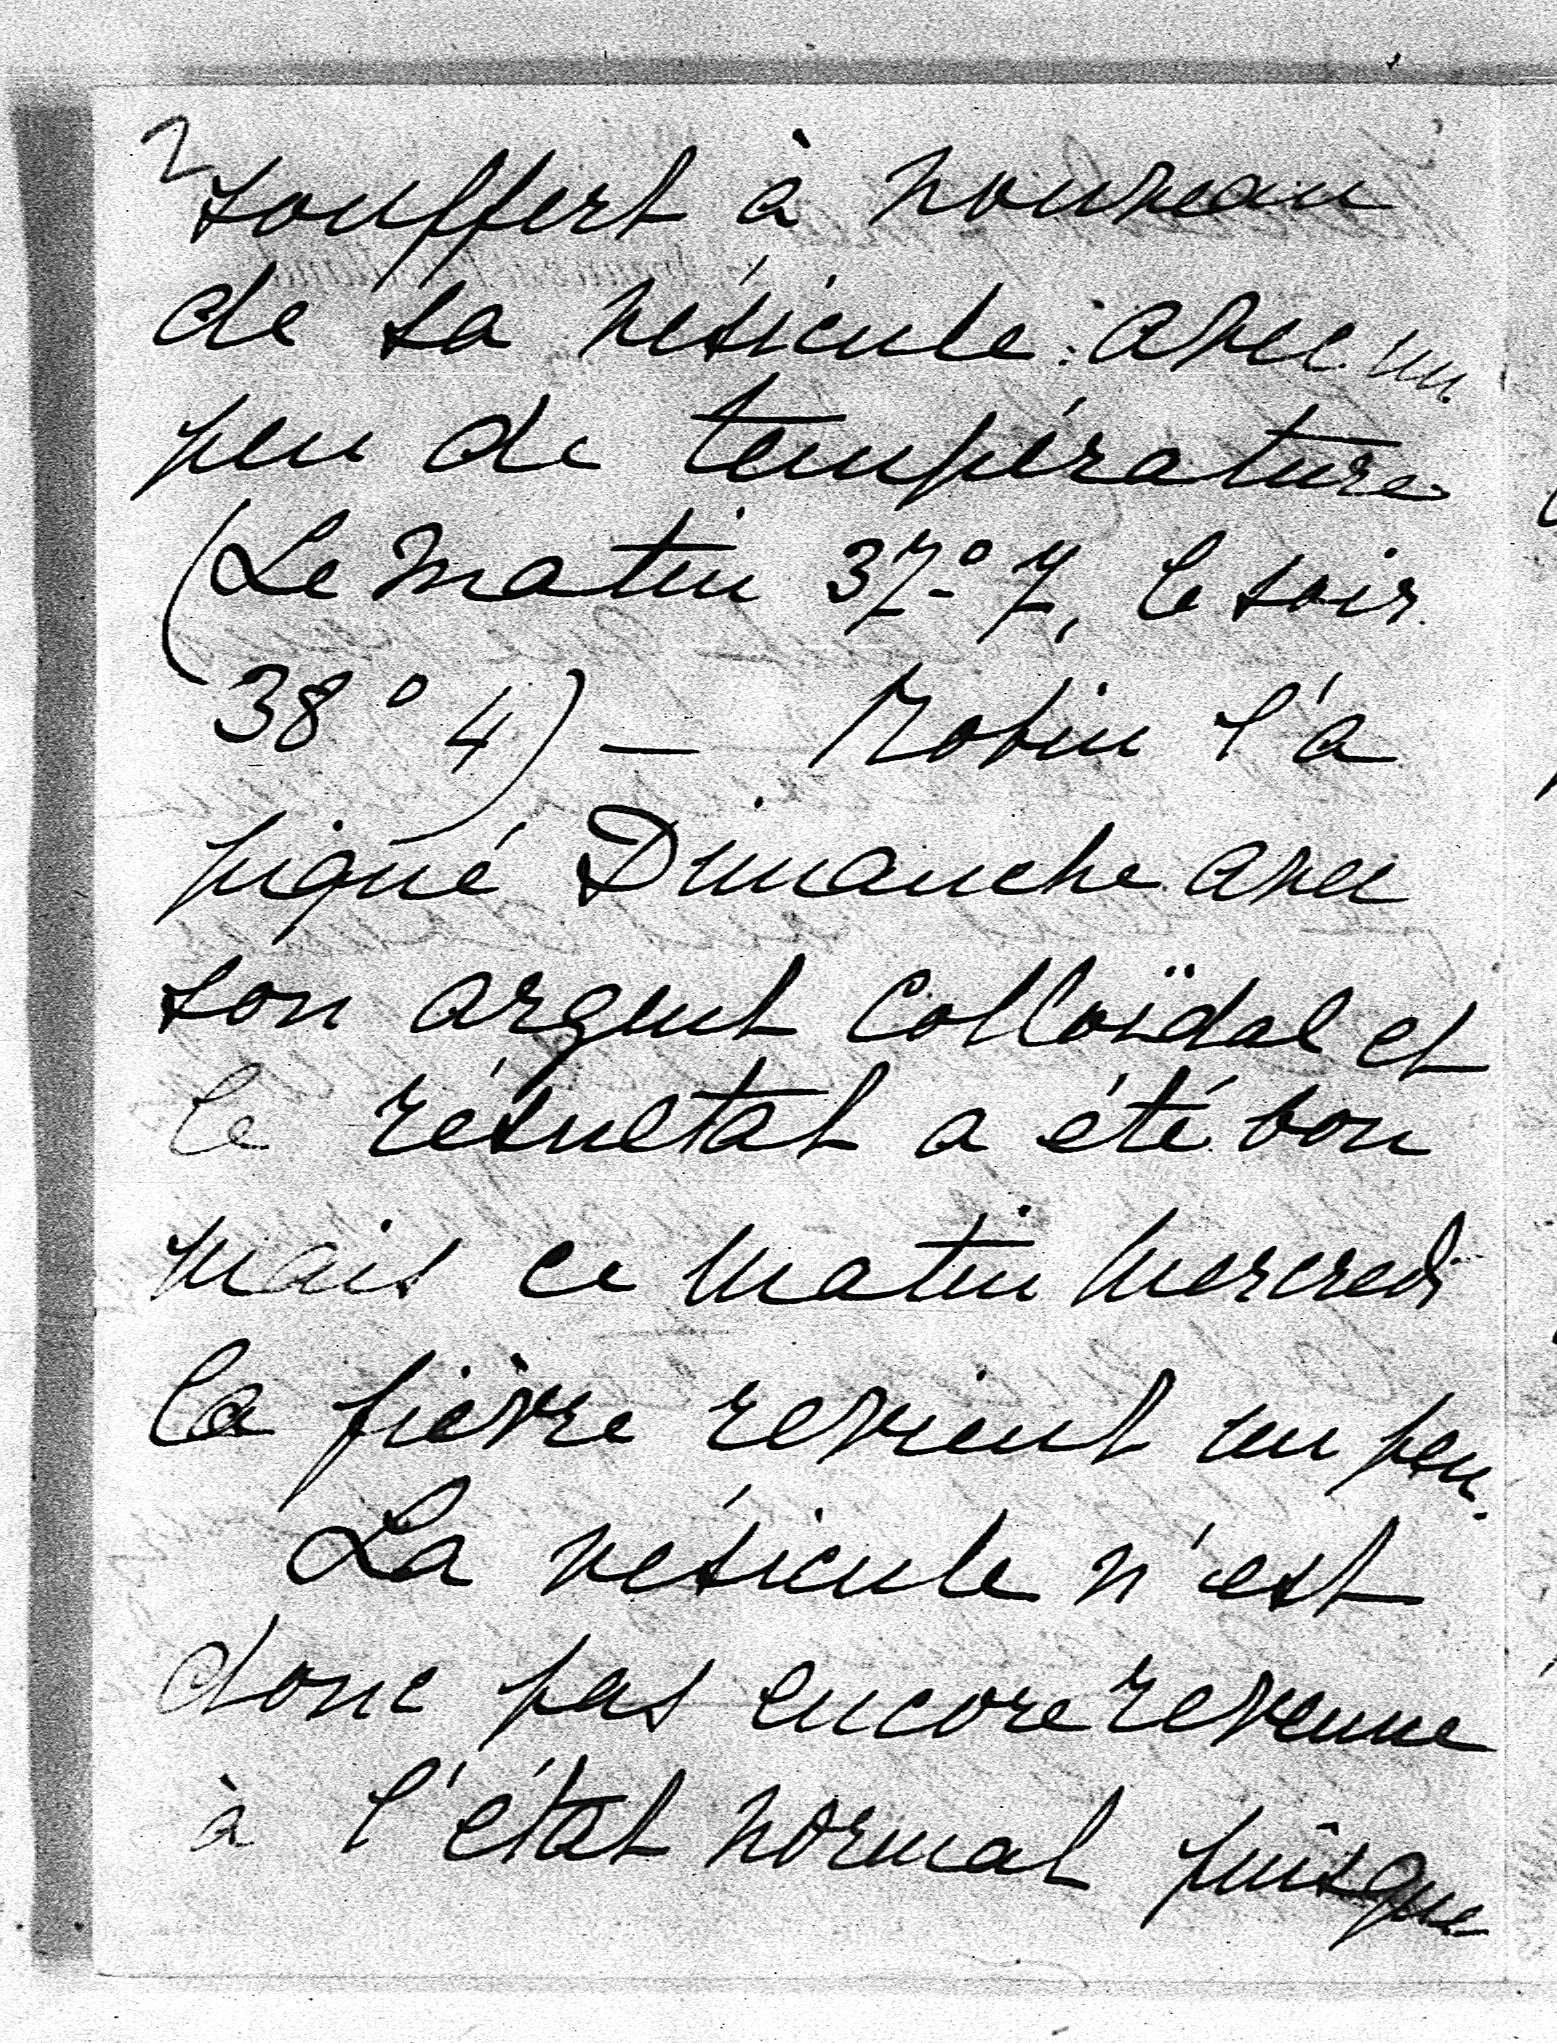 2
souffert à nouveau
de sa vésicule : avec un
peu de température
(Le matin 37°7, le soir
38°4) — Robin l'a
piqué Dimanche avec
son argent colloïdal et
le résultat a été bon
mais ce matin mercredi
la fièvre revient un peu.
La vésicule n'est
donc pas encore revenue
à l'état normal puisque